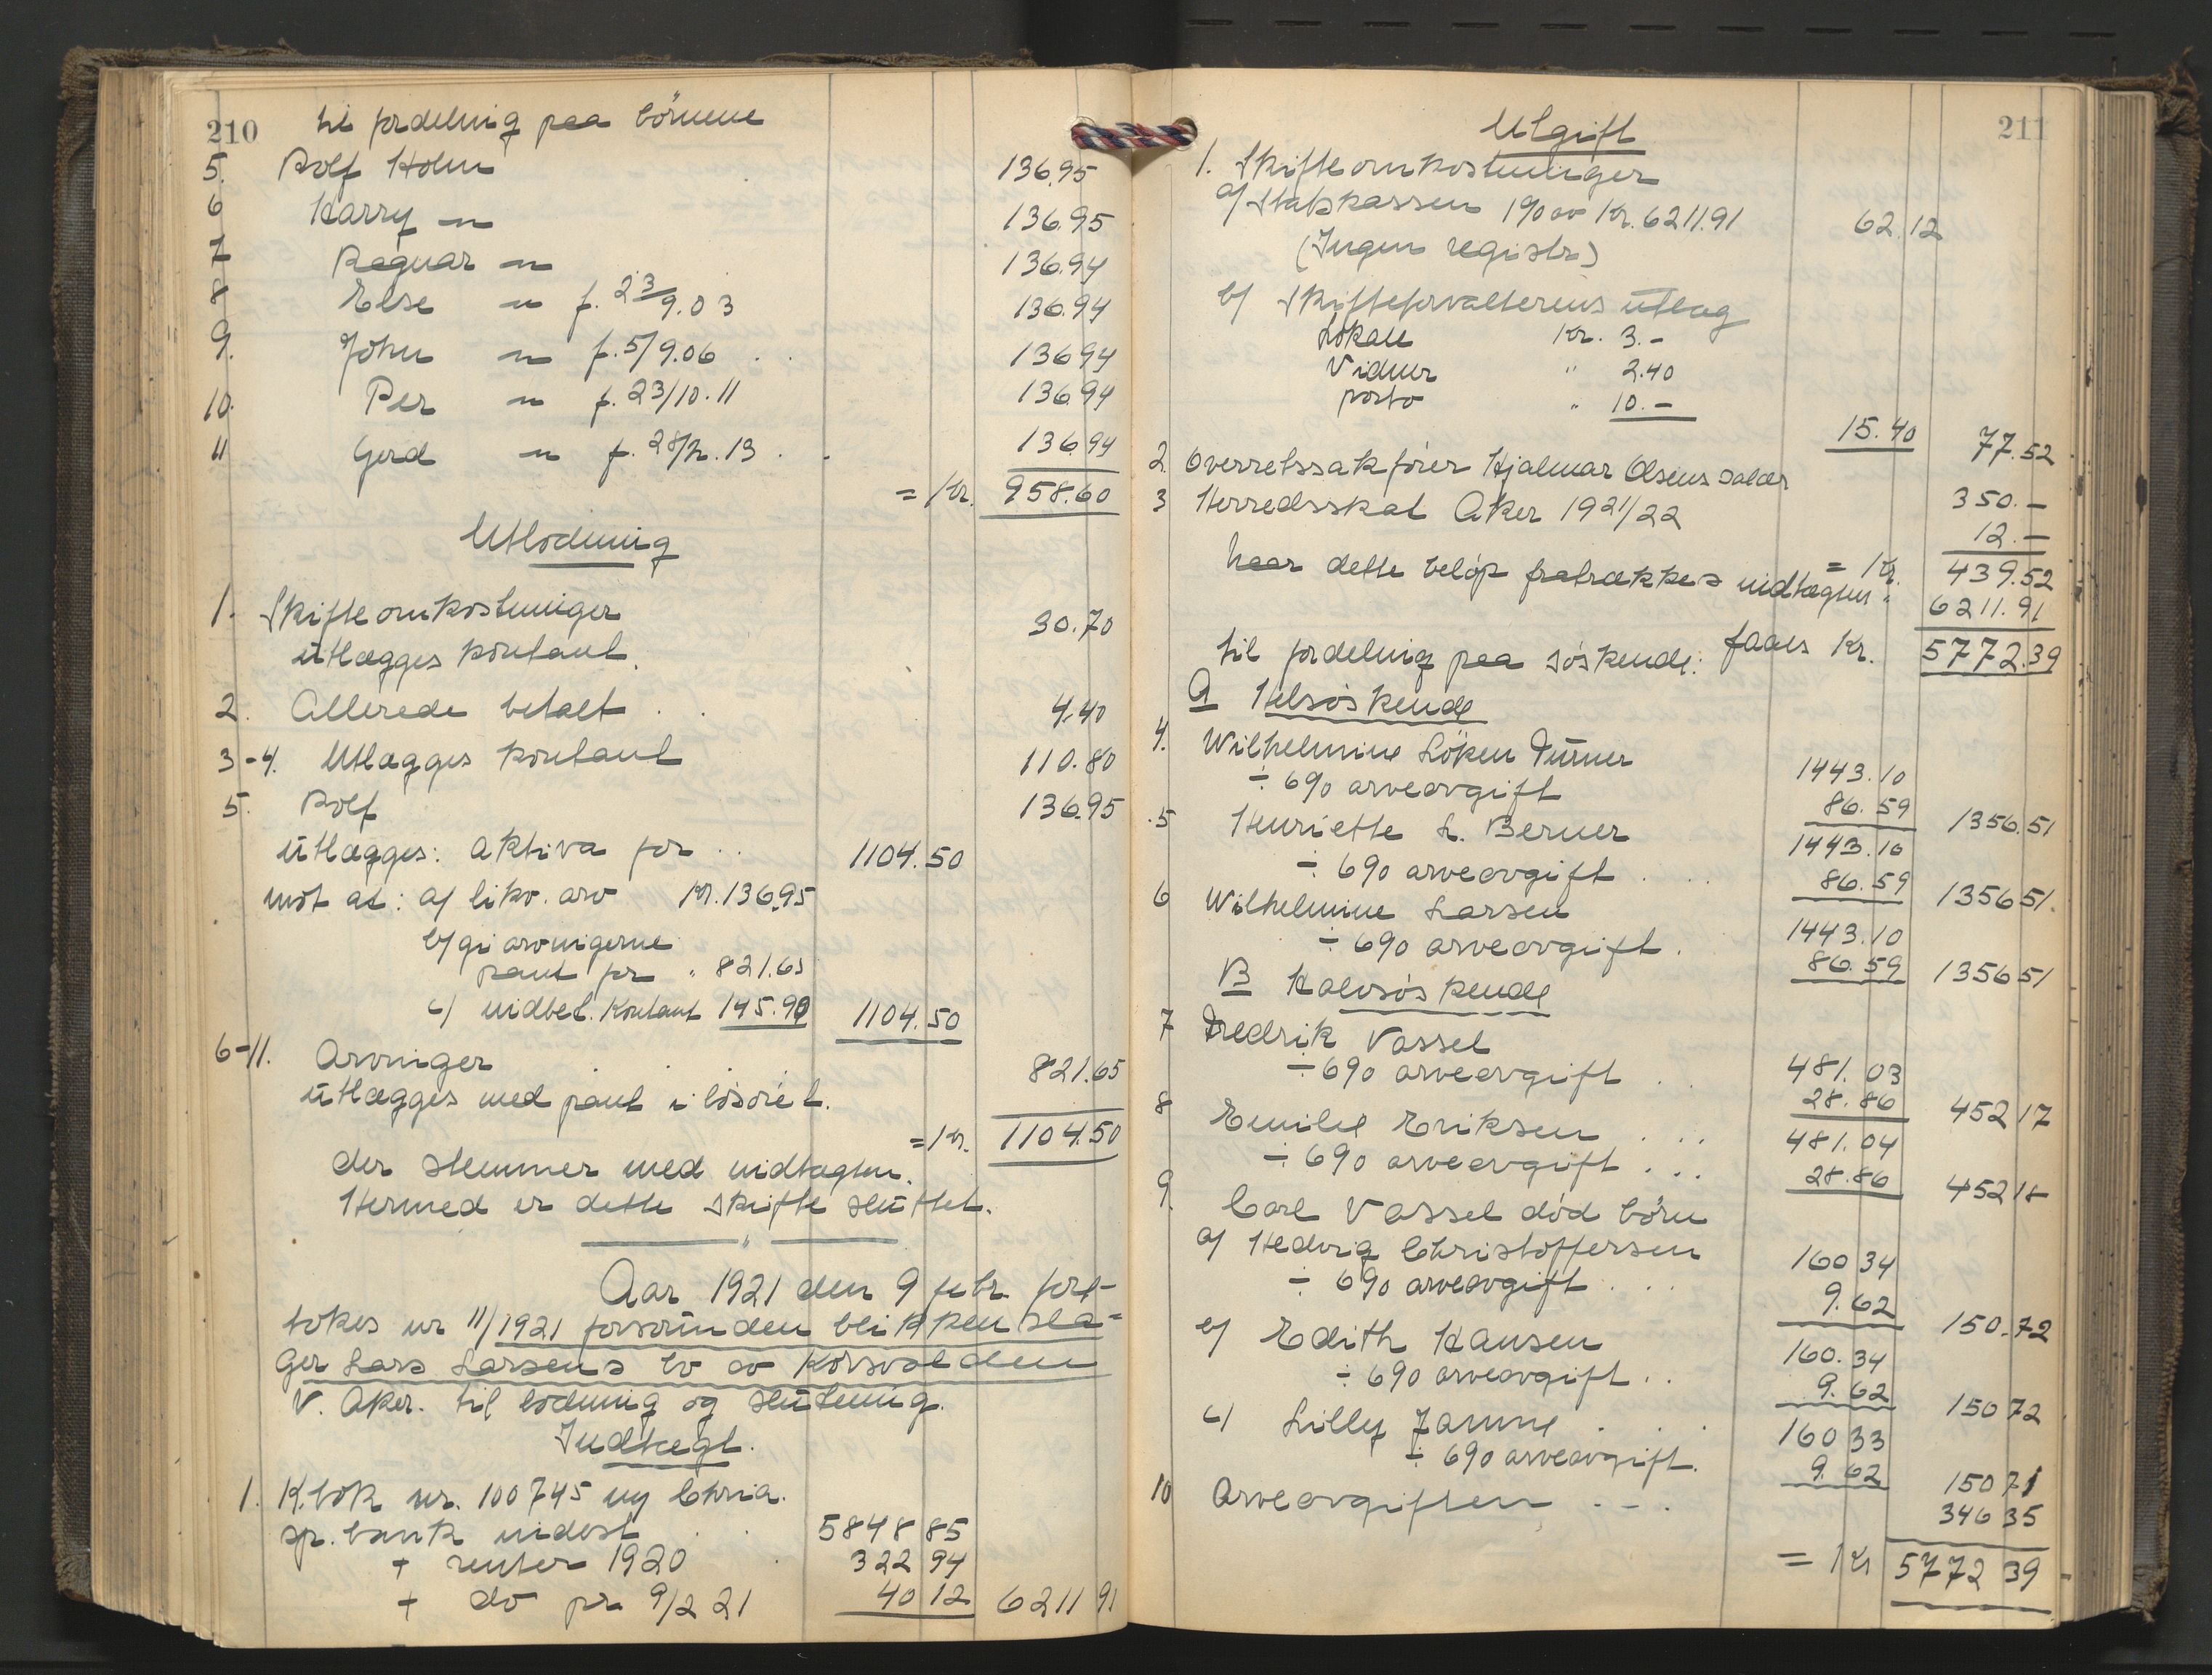 210 til fordeling paa börnene
5. Rolf Holm 136.95
6 Harry — " — 136.95
7 Ragnar — " — 136.94
8 Else — " — f. 23/9.03 136.94
9. John — " — f. 5/9.06 . . 136 94
10. Per — " — f. 23/10.11 136 94
11 Gerd — " — f. 28/2.13 . . 136 94
= Kr. 958.60
Utlodning
1. Skifteomkostninger 30.70
utlægges kontant.
2. Allerede betalt . . 4.40
3-4. Utlægges kontant 110.80
5. Rolf 136.95
utlægges: Aktiva for .. 1104.50
mot at: a/ likv. arv Kr. 136.95
b/ gi arvingerne
pant for " 821.65
c/ indbet. kontant 145.90 1104.50
6-11. Arvinger . . . 821.65
utlægges med pant i lösöret.
= Kr. 1104.50
der stemmer med indtægten.
Hermed er dette skifte sluttet.
Aar 1921 den 9 febr. fore-
tokes nr 11/1921 forsvunden blikkensla=
ger Lars Larsens bo av Korsvolden
V. Aker. til lodning og slutning.
Indtægt.
1. K.bok nr. 100745 ny Chria.
sp.bank indest . . 5848 85
+ renter 1920 . 322 94
+ do pr 9/2 21 40 12 6211 91
211
Utgift
1. Skifteomkostninger
a/ Statskassen 1% av Kr. 6211.91 62.12
(Ingen registr)
b/ Skifteforvalterens utlæg
Lokale Kr. 3.-
Vidner " 2.40
porto " 10.-
15.40 77.52
2. Overretssakförer Hjalmar Olsens salær 350.-
3 Herredsskat Aker 1921/22 12.-
= Kr. 439.52
Naar dette belöp fratrækkes indtægten " 6211.91
faaes Kr. 5772.39
til fordeling paa söskende:
A Helsöskende
4. Wilhelmine Löken Turner 1443.10
÷ 6% arveavgift 86.59 1356.51
5 Henriette L. Berner 1443.10
÷ 6% arveavgift . . . 86.59 1356 51.
6 Wilhelmine Larsen 1443.10
÷ 6% arveavgift . 86.59 1356 51
B Halvsöskende
7 Fredrik Vassel 481.03
÷ 6% arveavgift . . 28.86 452 17
8 Emilie Eriksen . . . 481.04
÷ 6% arveavgift . . . 28.86 452 18
9. Carl Vassel död börn
a/ Hedvig Christoffersen 160 34
÷ 6% arveavgift . . . 9.62 150.72
b/ Edith Hansen 160.34
÷ 6% arveavgift . . 9.62 150 72
c/ Lilly . . . 160 33
÷ 6% arveavgift. 9.62 150 71
10 Arveavgiften . - . 346 35
= Kr 5772 39